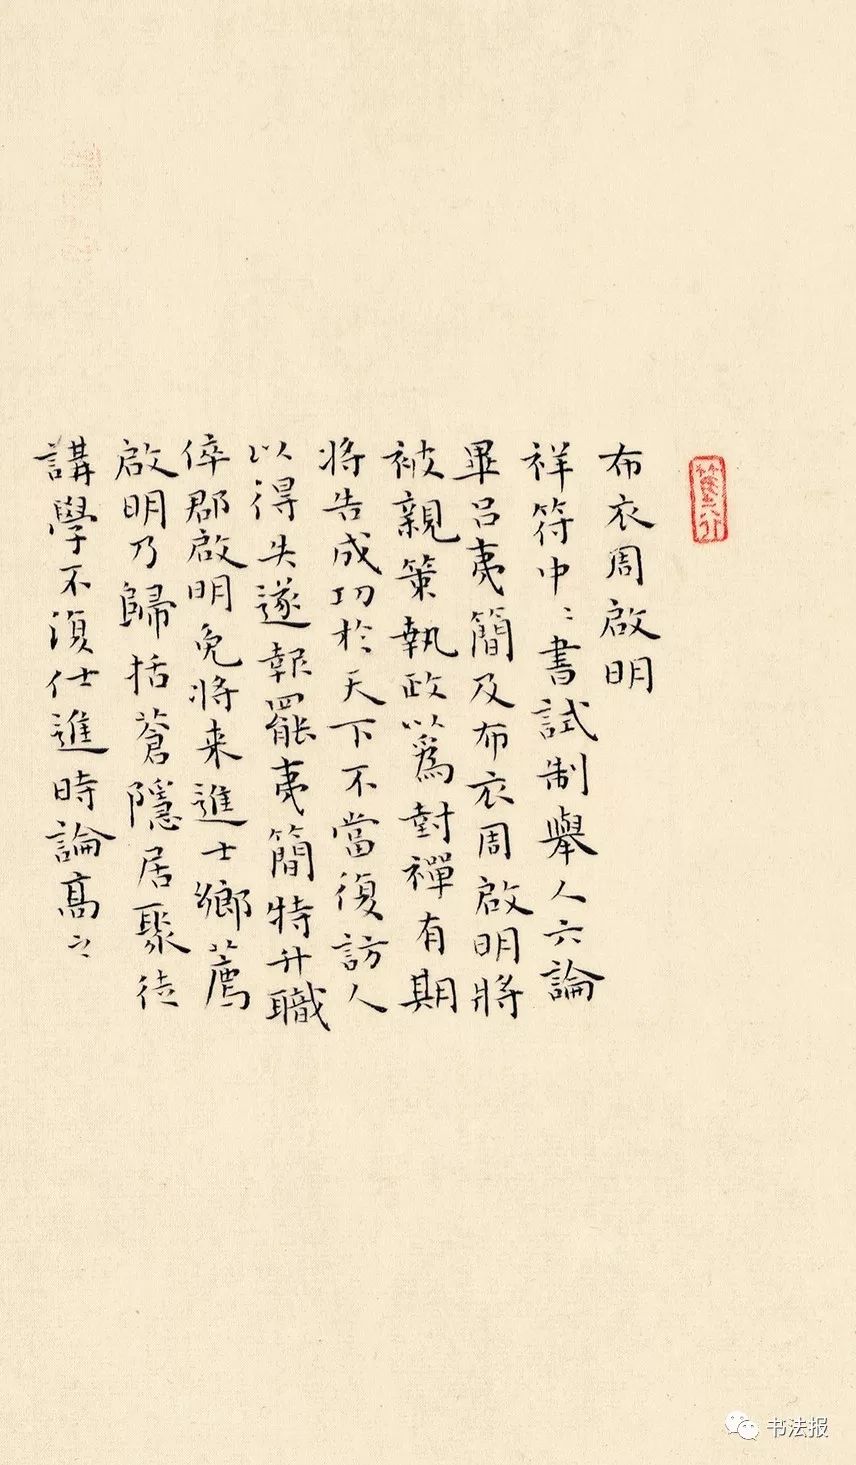 布衣周啟明
祥符中〻書試制舉人六論
畢呂夷簡及布衣周啟明將
被親策執政以為封禪有期
将告成功於天下不當復訪人
以得失遂報罷夷簡特升職
倅郡啟明免将来進士鄉薦
啟明乃歸括蒼隱居聚徒
講學不復仕進時論高之
书法报